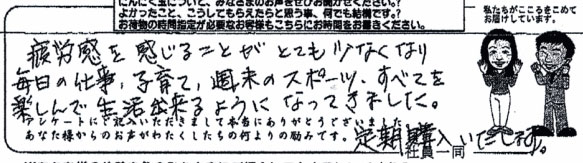 にんにく玉について、みなさまのお声をぜひお聞かせください。
よかったこと、こうしてもらえたらと思う事、何でも結構です。
お荷物の時間指定が必要なお客様もこちらにお時間をお書きください。
私たちがこころをこめて
お届けしています。
疲労感を感じることがとても少なくなり
毎日の仕事、子育て、週末のスポーツ、すべてを
楽しんで生活出来るようになってきました。
アンケートにご記入いただきまして本当にありがとうございました。
あなた様からのお声がわたくしたちの何よりの励みです。
定期購入いたします。
社員一同